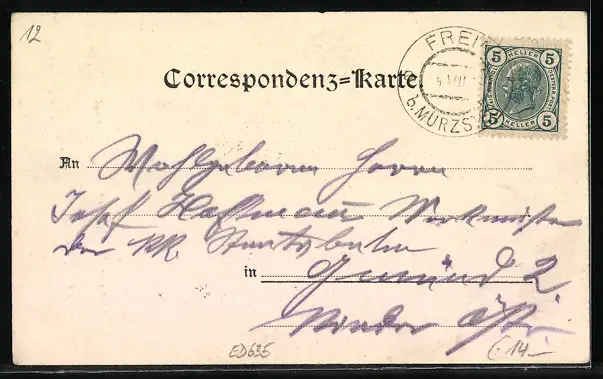 12
FREI
5 HELLER 5
4 VII
Correspondenz=Karte
b. MÜRZS
5 HELLER 5
An Wohlgeboren Herrn
Josef Hoffmann Werkmeister
der kk. Staatsbahn
in Gmünd 2
Nieder Östr.
ED635
€ 14.-